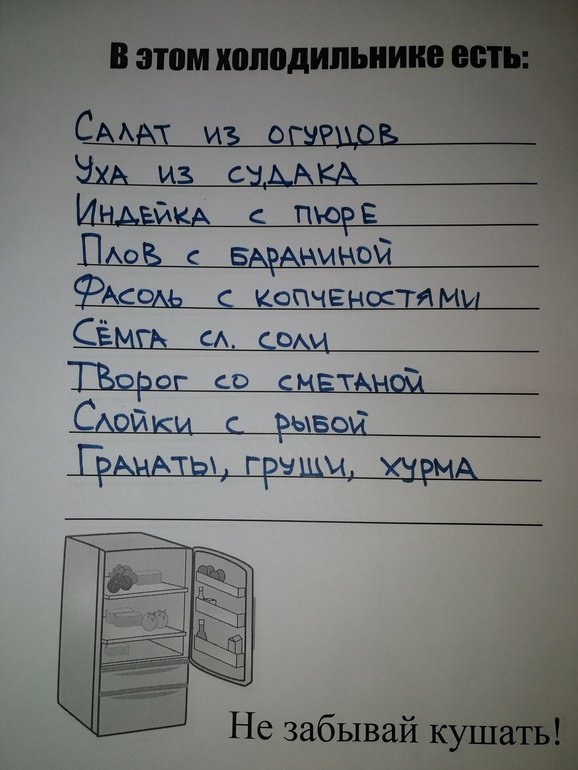 В этом холодильнике есть:
Салат из огурцов
Уха из судака
Индейка с пюре
Плов с бараниной
Фасоль с копченостями
Сёмга сл. соли
Творог со сметаной
Слойки с рыбой
Гранаты, груши, хурма
Не забывай кушать!